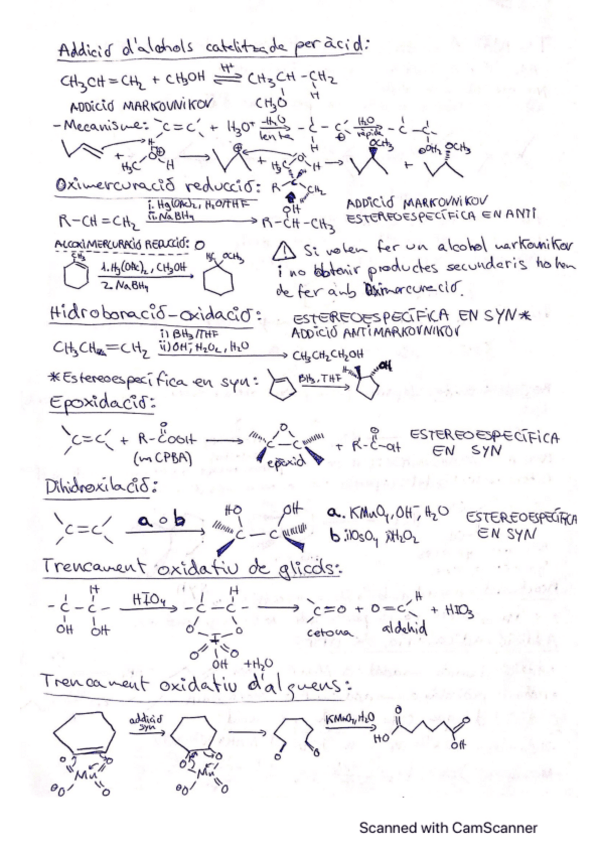 Addició d'alcohols catalitzada per àcid:
CH₃CH=CH₂ + CH₃OH ⇌ H⁺ CH₃CH-CH₂
CH₃O H
ADDICIÓ MARKOVNIKOV
-Mecanisme: C=C + H₃O⁺ -H₂O lenta -C-C⊕ H₂O ràpida -C-C- ⊕OH₂
H₃C O⊕ H + H₃C O H OCH₃ + OCH₃
Oximercuració reducció:
R-CH=CH₂ i. Hg(OAc)₂, H₂O/THF ii. NaBH₄ OH R-CH-CH₃
ADDICIÓ MARKOVNIKOV
ESTEREOESPECÍFICA EN ANTI
ALCOXIMERCURACIÓ REDUCCIÓ:
CH₃ 1. Hg(OAc)₂, CH₃OH 2. NaBH₄ OCH₃
⚠ Si volem fer un alcohol markovnikov
i no obtenir productes secundaris ho hem
de fer amb Oximercuració.
Hidroboració-oxidació:
ESTEREOESPECÍFICA EN SYN*
ADDICIÓ ANTIMARKOVNIKOV
CH₃CH=CH₂ i) BH₃/THF ii) OH⁻, H₂O₂, H₂O CH₃CH₂CH₂OH
*Estereoespecífica en syn: BH₃, THF H OH
Epoxidació:
C=C + R-COOH O (mCPBA) C-C O epòxid + R-C-OH O
ESTEREOESPECÍFICA
EN SYN
Dihidroxilació:
C=C a o b HO OH C-C
a. KMnO₄, OH⁻, H₂O
ESTEREOESPECÍFICA
EN SYN
Trencament oxidatiu de glicols:
-C-C-H OH OH HIO₄ -C-C- O O I O O OH +H₂O C=O + O=C H + HIO₃
cetona aldehid
Trencament oxidatiu d'alquens:
addició syn KMnO₄, H₂O
O O Mn ⊖O O O O Mn ⊖O O O O HO O O OH
Scanned with CamScanner